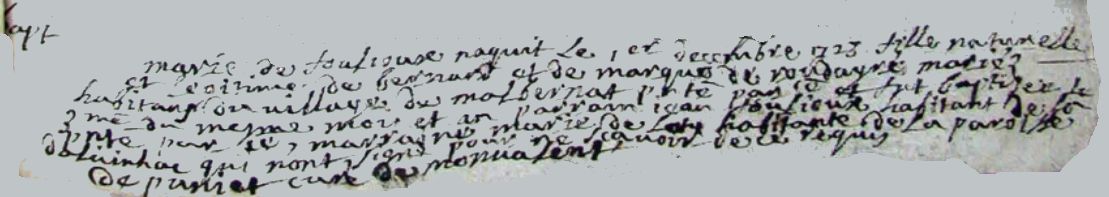 bapt
marie de soulioux naquit le 1er decembre 1723 fille naturelle
et legitime de bernard et de marque de roudayre mariés
habitans du village de malbernat pnte par ie et fut baptisee le
3me du mesme mois et an parrain jean soulioux habitant de la
pnte par ie, marraine marie de habitante de la paroisse
da qui nont signe pour ne scavoir de ce requis
de puniet curé de monvalent